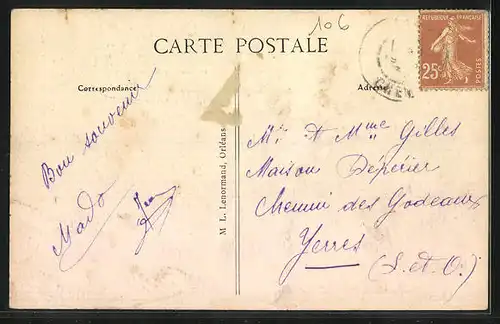 106
CARTE POSTALE
RÉPUBLIQUE FRANÇAISE
25c
POSTES
Correspondance
Adresse
Bon souvenir
Mado
Jean
M. L. Lenormand, Orléans
Mr & Mme Gilles
Maison Depérier
Chemin des Godeaux
Yerres
(S. et O.)